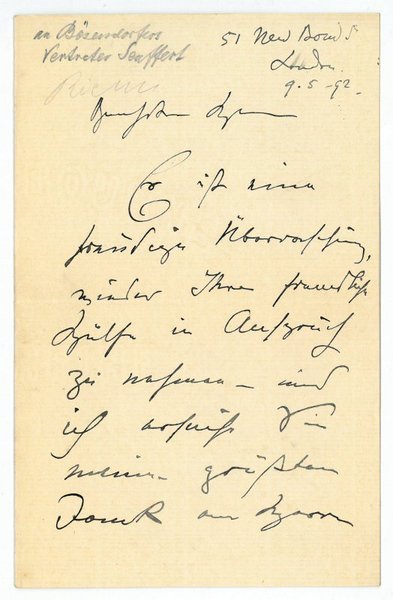 an Bösendorfers
Vertreter Seuffert
51 New Bond St
London.
9.5-92.
Es ist eine
freudige Überraschung,
wieder Ihre freundliche
Hülfe in Anspruch
zu nehmen – und
ich ersuche Sie
meinen größten
Dank an Herrn